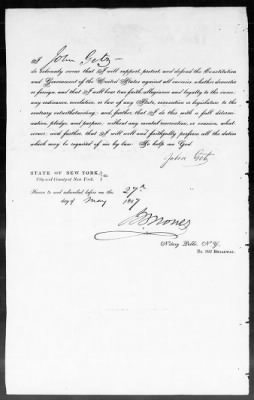 I John Getz
do Solemnly swear that I will support, protect and defend the Constitution
and Government of the United States against all enemies whether domestic
or foreign, and that I will bear true faith, allegiance and loyalty to the same,
any ordinance, resolution, or law of any State, convention or legislature to the
contrary notwithstanding; and further, that I do this with a full deter-
mination, pledge and purpose, without any mental reservation or evasion what-
soever, and further, that I will well and faithfully perform all the duties
which may be required of me by law. So help me God.
John Getz
STATE OF NEW YORK,
City and County of New York.
Sworn to and subscribed before me this 27th
day of May 1867
Notary Public, N.Y.
No. BROADWAY.